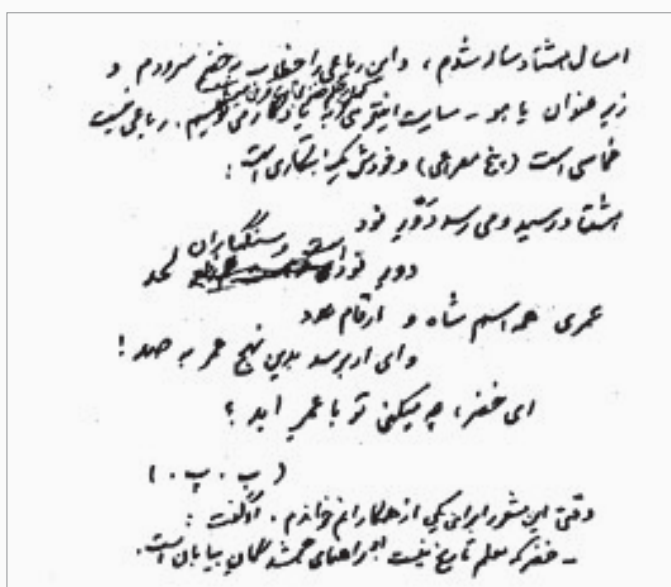 امسال هشتاد ساله شدم، و این رباعی را خطاب به خضر سرودم و
زیر عنوان یا هو - سایت اینترنتی به یادگار می نویسم. رباعی نیست
خماسی است (پنج مصراعی) و خودش یک ابتکاری است:
هشتاد رسید و می رسد دَورِ نود
دورِ نود است و سنگبارانِ لحد
عمری همه اسم شاه و ارقام و عدد
وای ار برسد بدین نهج عمر به صد!
ای خضر، چه میکنی تو با عمرِ ابد؟
(ب. پ.)
وقتی این شعر را برای یکی از همکارانم خواندم. او گفت:
- خضر که معلم تاریخ نیست او راهنمای گمشدگانِ بیابان است.